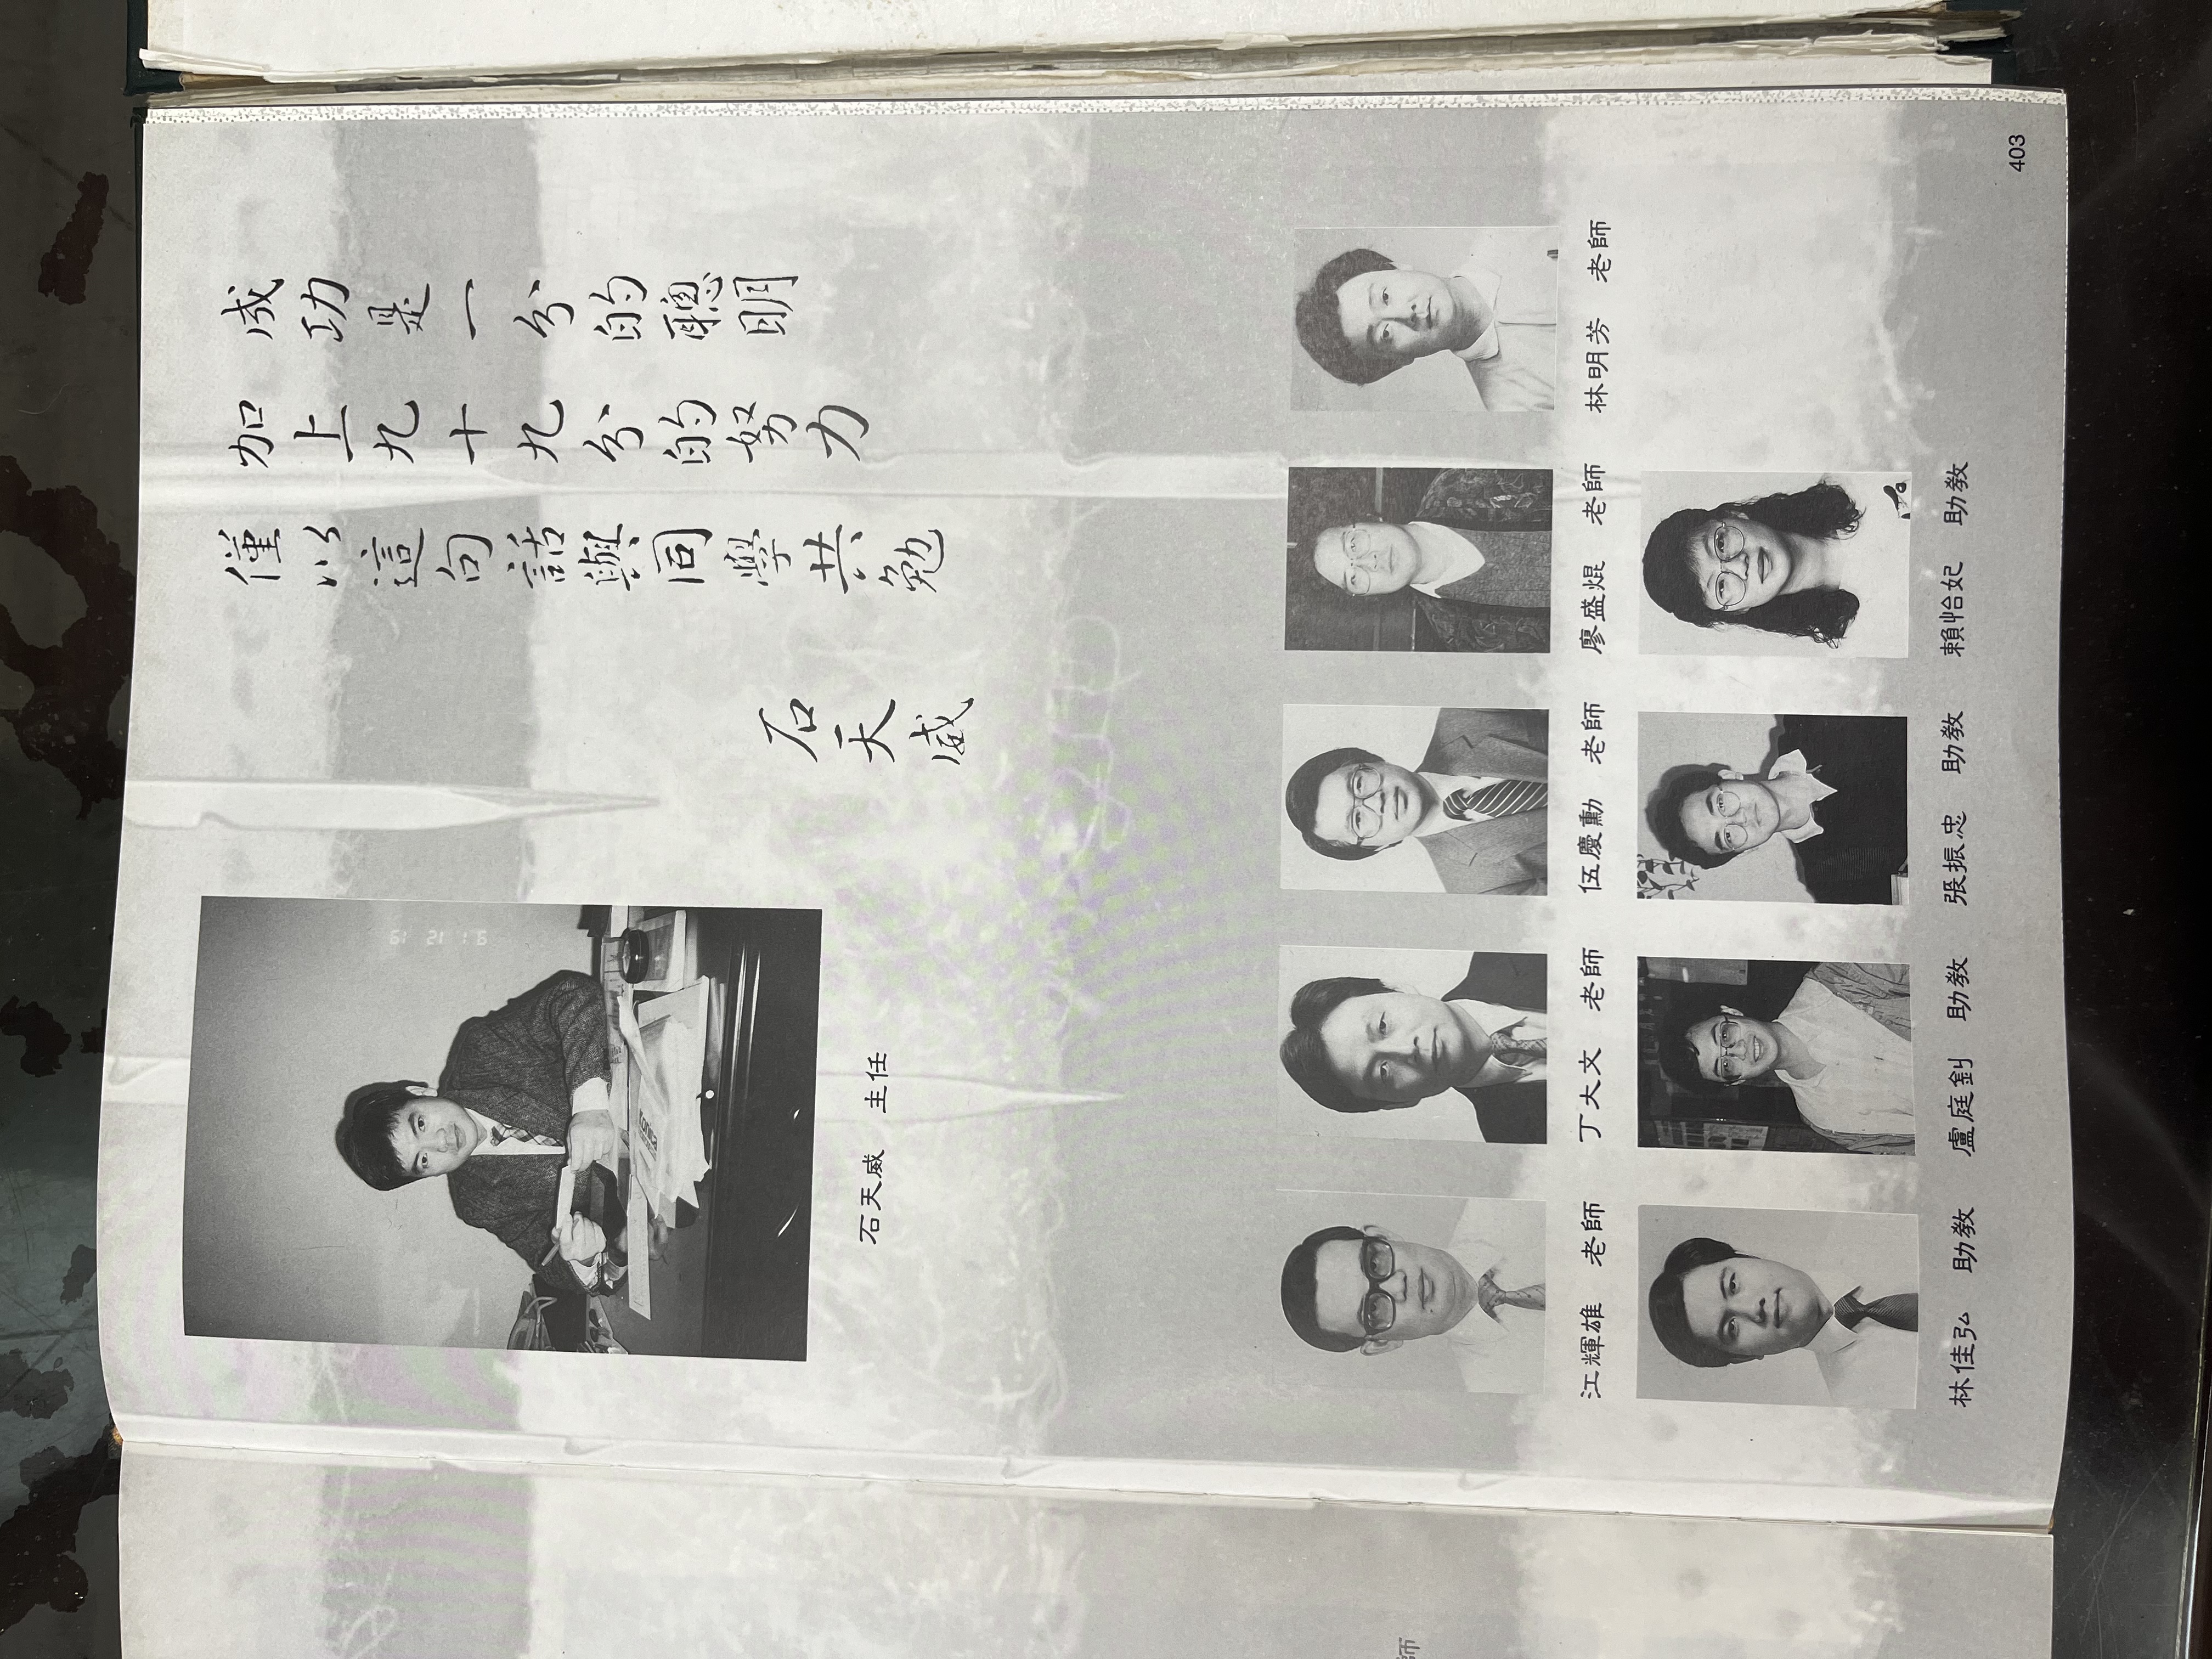 成功是一分的聰明
加上九十九分的努力
僅以這句話與同學共勉
石天威
石天威 主任
江輝雄 老師
丁大文 老師
伍慶勳 老師
廖盛焜 老師
林明芳 老師
林佳弘 助教
盧庭釗 助教
張振忠 助教
賴怡妃 助教
403
師